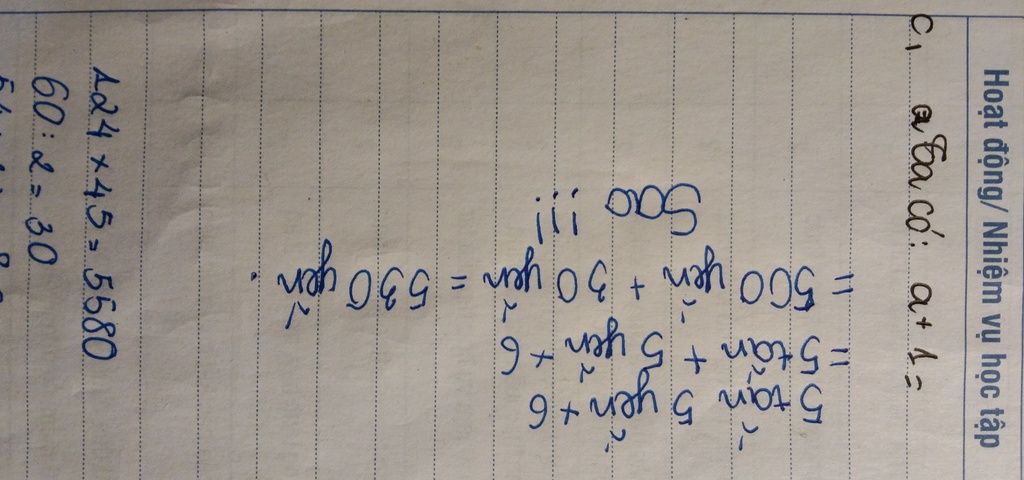 Hoạt động/ Nhiệm vụ học tập
c, Ta có: a + 1 =
5 tấn 5 yến × 6
= 5 tấn + 5 yến × 6
= 500 yến + 30 yến = 530 yến.
Sao !!!
124 × 45 = 5580
60 : 2 = 30